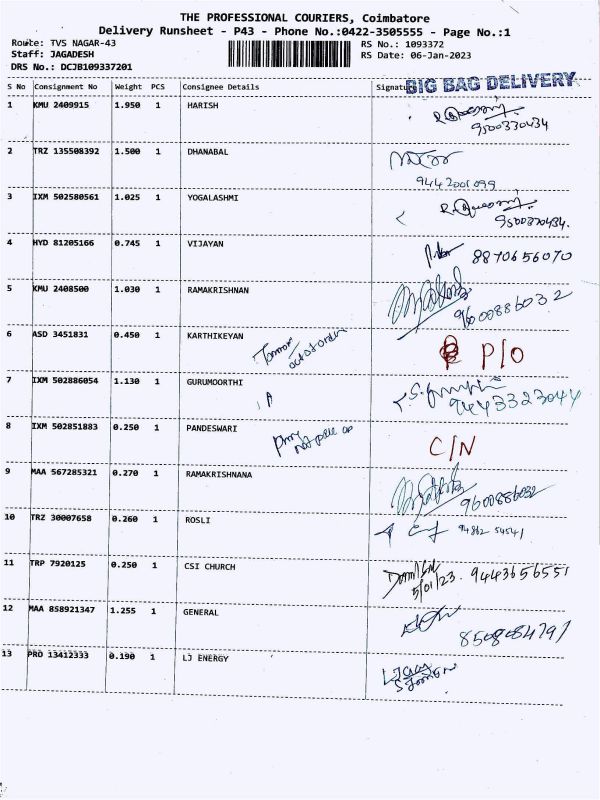 THE PROFESSIONAL COURIERS, Coimbatore
Delivery Runsheet - P43 - Phone No.:0422-3505555 - Page No.:1
Route: TVS NAGAR-43 RS No.: 1093372
Staff: JAGADESH RS Date: 06-Jan-2023
DRS No.: DCJB109337201
S No Consignment No Weight PCS Consignee Details Signatu BIG BAG DELIVERY
1 KMU 2409915 1.950 1 HARISH
9500330434
2 TRZ 135508392 1.500 1 DHANABAL
9442001099
3 IXM 502580561 1.025 1 YOGALASHMI
4 HYD 81205166 0.745 1 VIJAYAN 8870656070
5 KMU 2408500 1.030 1 RAMAKRISHNAN 9600886032
6 ASD 3451831 0.450 1 KARTHIKEYAN P/O
7 IXM 502886054 1.130 1 GURUMOORTHI 9443323044
8 IXM 502851883 0.250 1 PANDESWARI C/N
9 MAA 567285321 0.270 1 RAMAKRISHNANA 9600886032
10 TRZ 30007658 0.260 1 ROSLI 94862 54541
11 TRP 7920125 0.250 1 CSI CHURCH 9443656551
5/01/23
12 MAA 858921347 1.255 1 GENERAL
13 PRO 13412333 0.190 1 LJ ENERGY